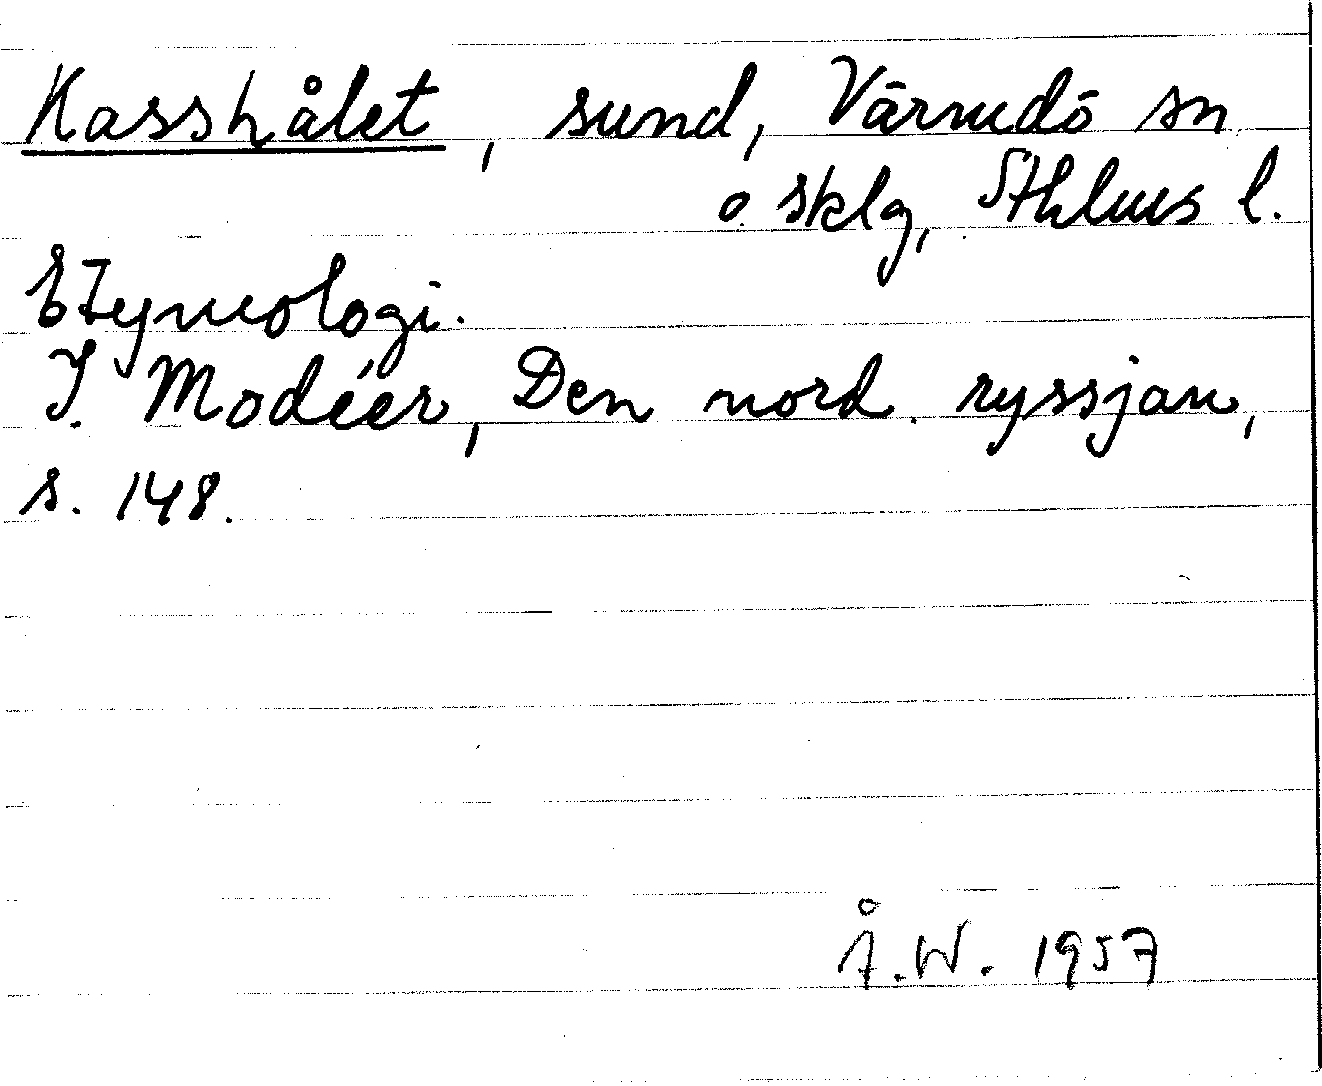 Kasshålet, sund, Värmdö sn
o. sklg, Sthlms l.
Etymologi.
I. Modéer, Den nord. ryssjan,
s. 148.
Å.W. 1957